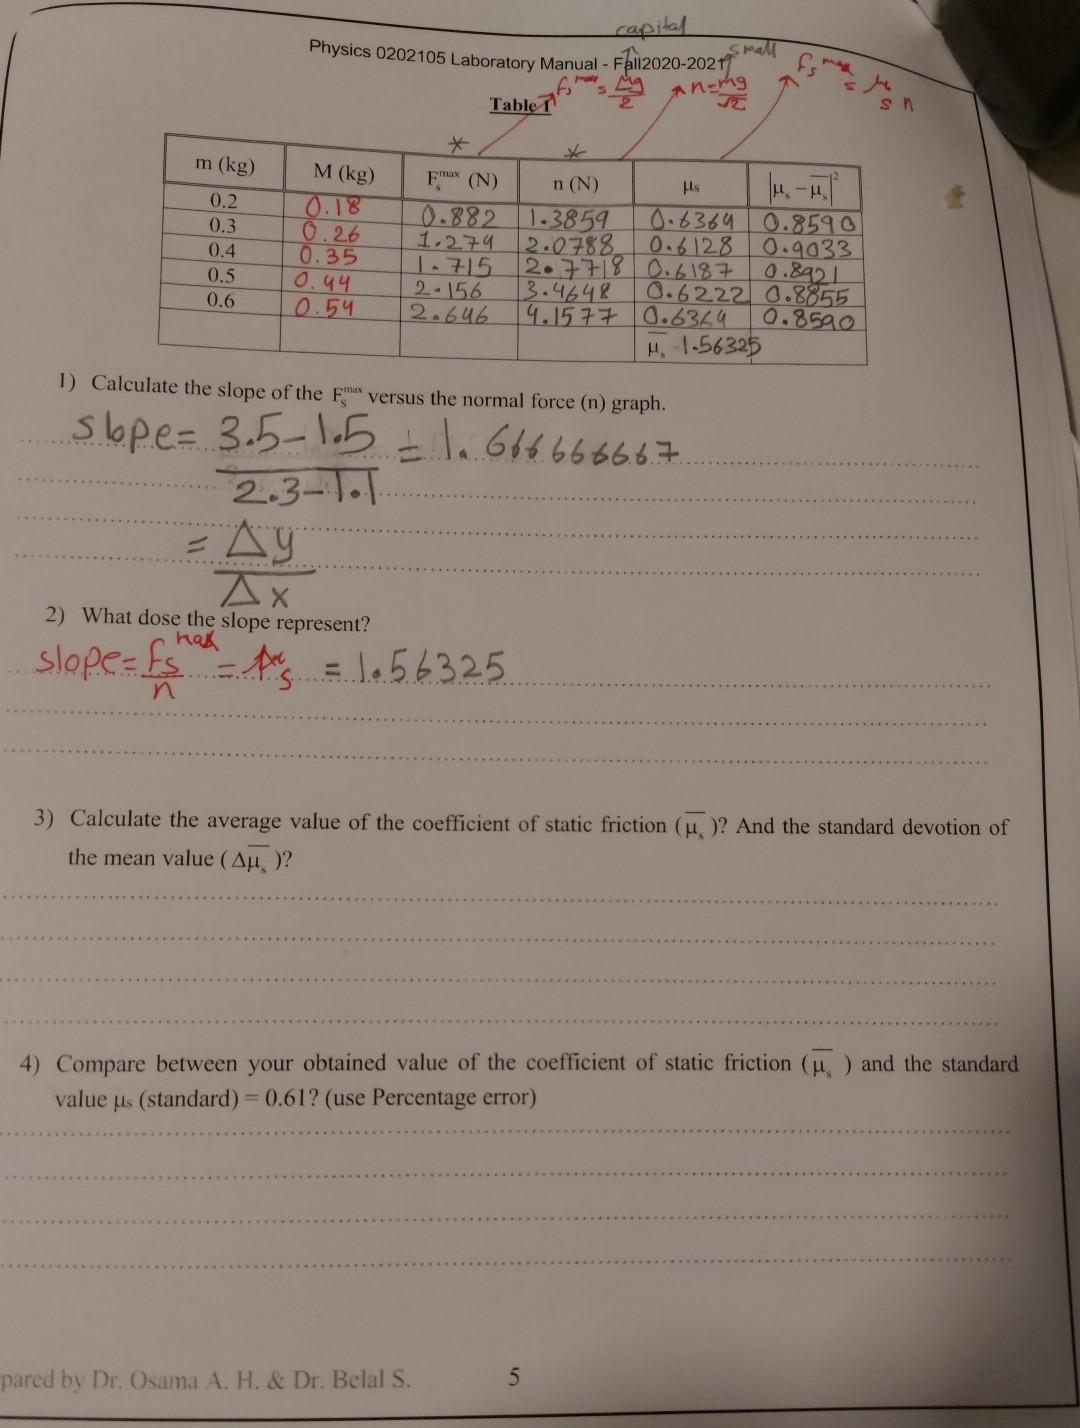 capital
Physics 0202105 Laboratory Manual - Fall2020-2021
small
Fs max = Mg/2
n=mg/√2
Fs max = μs n
Table 1
* *
m (kg) M (kg) Fsmax (N) n (N) μs |μs - μs̅|²
0.2 0.18 0.882 1.3859 0.6364 0.8590
0.3 0.26 1.274 2.0788 0.6128 0.9033
0.4 0.35 1.715 2.7718 0.6187 0.8921
0.5 0.44 2.156 3.4648 0.6222 0.8855
0.6 0.54 2.646 4.1577 0.6364 0.8590
μs̅ 1.56325
1) Calculate the slope of the Fsmax versus the normal force (n) graph.
slope= 3.5-1.5 = 1.666666667
2.3-1.1
= Δy
Δx
2) What dose the slope represent?
slope= fs max / n = μs = 1.56325
3) Calculate the average value of the coefficient of static friction (μs̅ )? And the standard devotion of
the mean value (Δμs̅ )?
4) Compare between your obtained value of the coefficient of static friction (μs̅ ) and the standard
value μs (standard) = 0.61? (use Percentage error)
pared by Dr. Osama A. H. & Dr. Belal S. 5